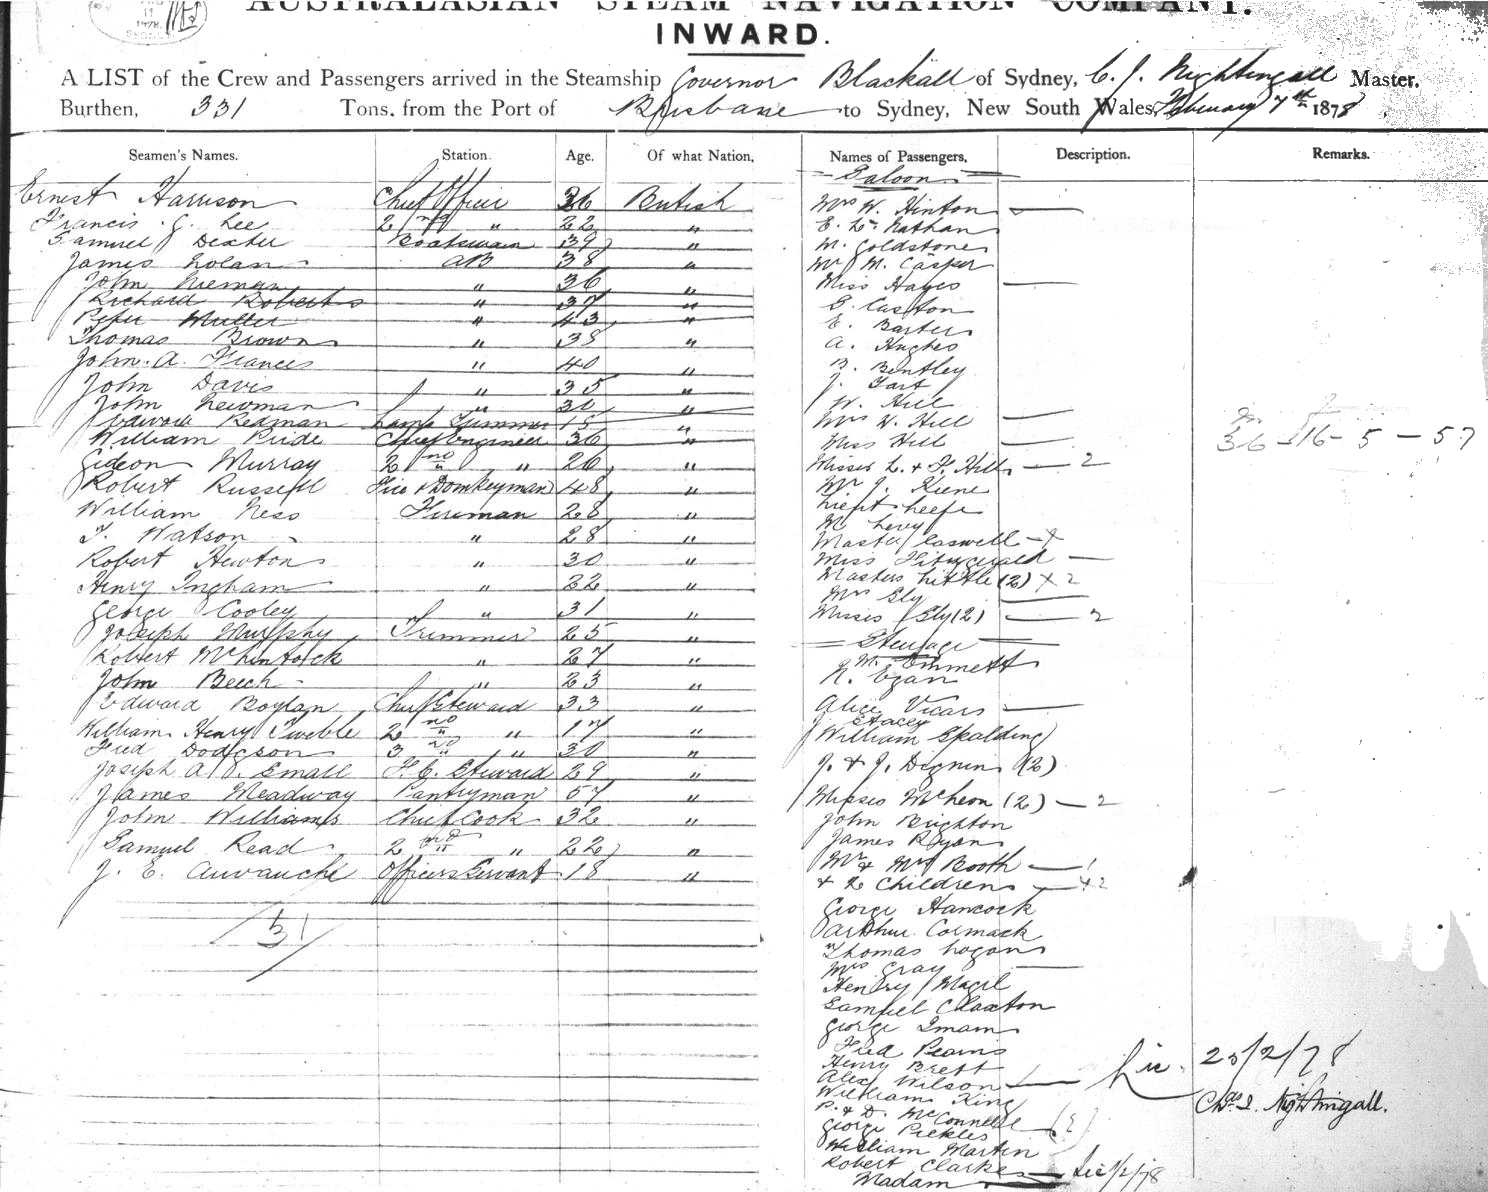 AUSTRALASIAN STEAM NAVIGATION COMPANY.
INWARD.
A LIST of the Crew and Passengers arrived in the Steamship Governor Blackall of Sydney, C. J. Nightingall Master.
Burthen, 331 Tons. from the Port of Brisbane to Sydney, New South Wales, February 7th 1878
Seamen's Names. Station. Age. Of what Nation.
Ernest Harrison Chief Officer 36 British
Francis G. Lee 2nd " 22 "
Samuel Dexter Boatswain 39 "
James Nolan AB 38 "
John Nieman " 36 "
Richard Roberts " 37 "
Peter Muller " 43 "
Thomas Brown " 38 "
John. A. Frances " 40 "
John Davis " 35 "
John Newman " 30 "
Edward Redman Lamp Trimmer 15 "
William Pride Chief Engineer 36 "
Gideon Murray 2nd " 26 "
Robert Russell Fire & Donkeyman 48 "
William Ness Fireman 28 "
T. Watson " 28 "
Robert Hewton " 30 "
Henry Ingham " 22 "
George Cooley " 31 "
Joseph Murphy Trimmer 25 "
Robert McLintock " 27 "
John Beech " 23 "
Edward Boylan Chief Steward 33 "
William Henry Tweble 2nd " 17 "
Fred Dodgson 3 " 30 "
Joseph A. J. Small F. C. Steward 29 "
James Meadway Pantryman 57 "
John Williams Chief Cook 32 "
Samuel Read 2nd " 22 "
J. E. Auvauche Officers Servant 18 "
31
Names of Passengers. Description. Remarks.
Saloon
Mrs W. Hinton
E. L. Nathan
M. Goldstone
Mr M. Casper
Miss Hayes
E. Caston
E. Barter
A. Hughes
B. Bentley
J. Tart
W. Hill
Mrs W. Hill
Miss Hill
Misses L. & F. Hill 2
Mr J. Keene
Lieut Keefe
M Levy
Master Caswell
Miss Fitzgerald
Masters Little (2) x 2
Mrs Sly
Misses Sly (2) 2
36 - 16 - 5 - 57
Steerage
M. Emmett
R. Egan
Alice Vicars
J Stacey
William Spalding
J. & J. Dignen (2)
Misses McKeon (2) 2
John Brighton
James Ryan
Mr & Mrs Booth 1
& 2 Children x 2
George Hancock
Arthur Cormack
Thomas Hogan
Mrs Gray
Henry Magil
Samuel Claxton
George Imam
Fred Pearns
Henry Brett
Alex Wilson
William King
P. & D. McConnell
George Pickles
William Martin
Robert Clarke
Madam
25/2/78
Chas. J. Nightingall.